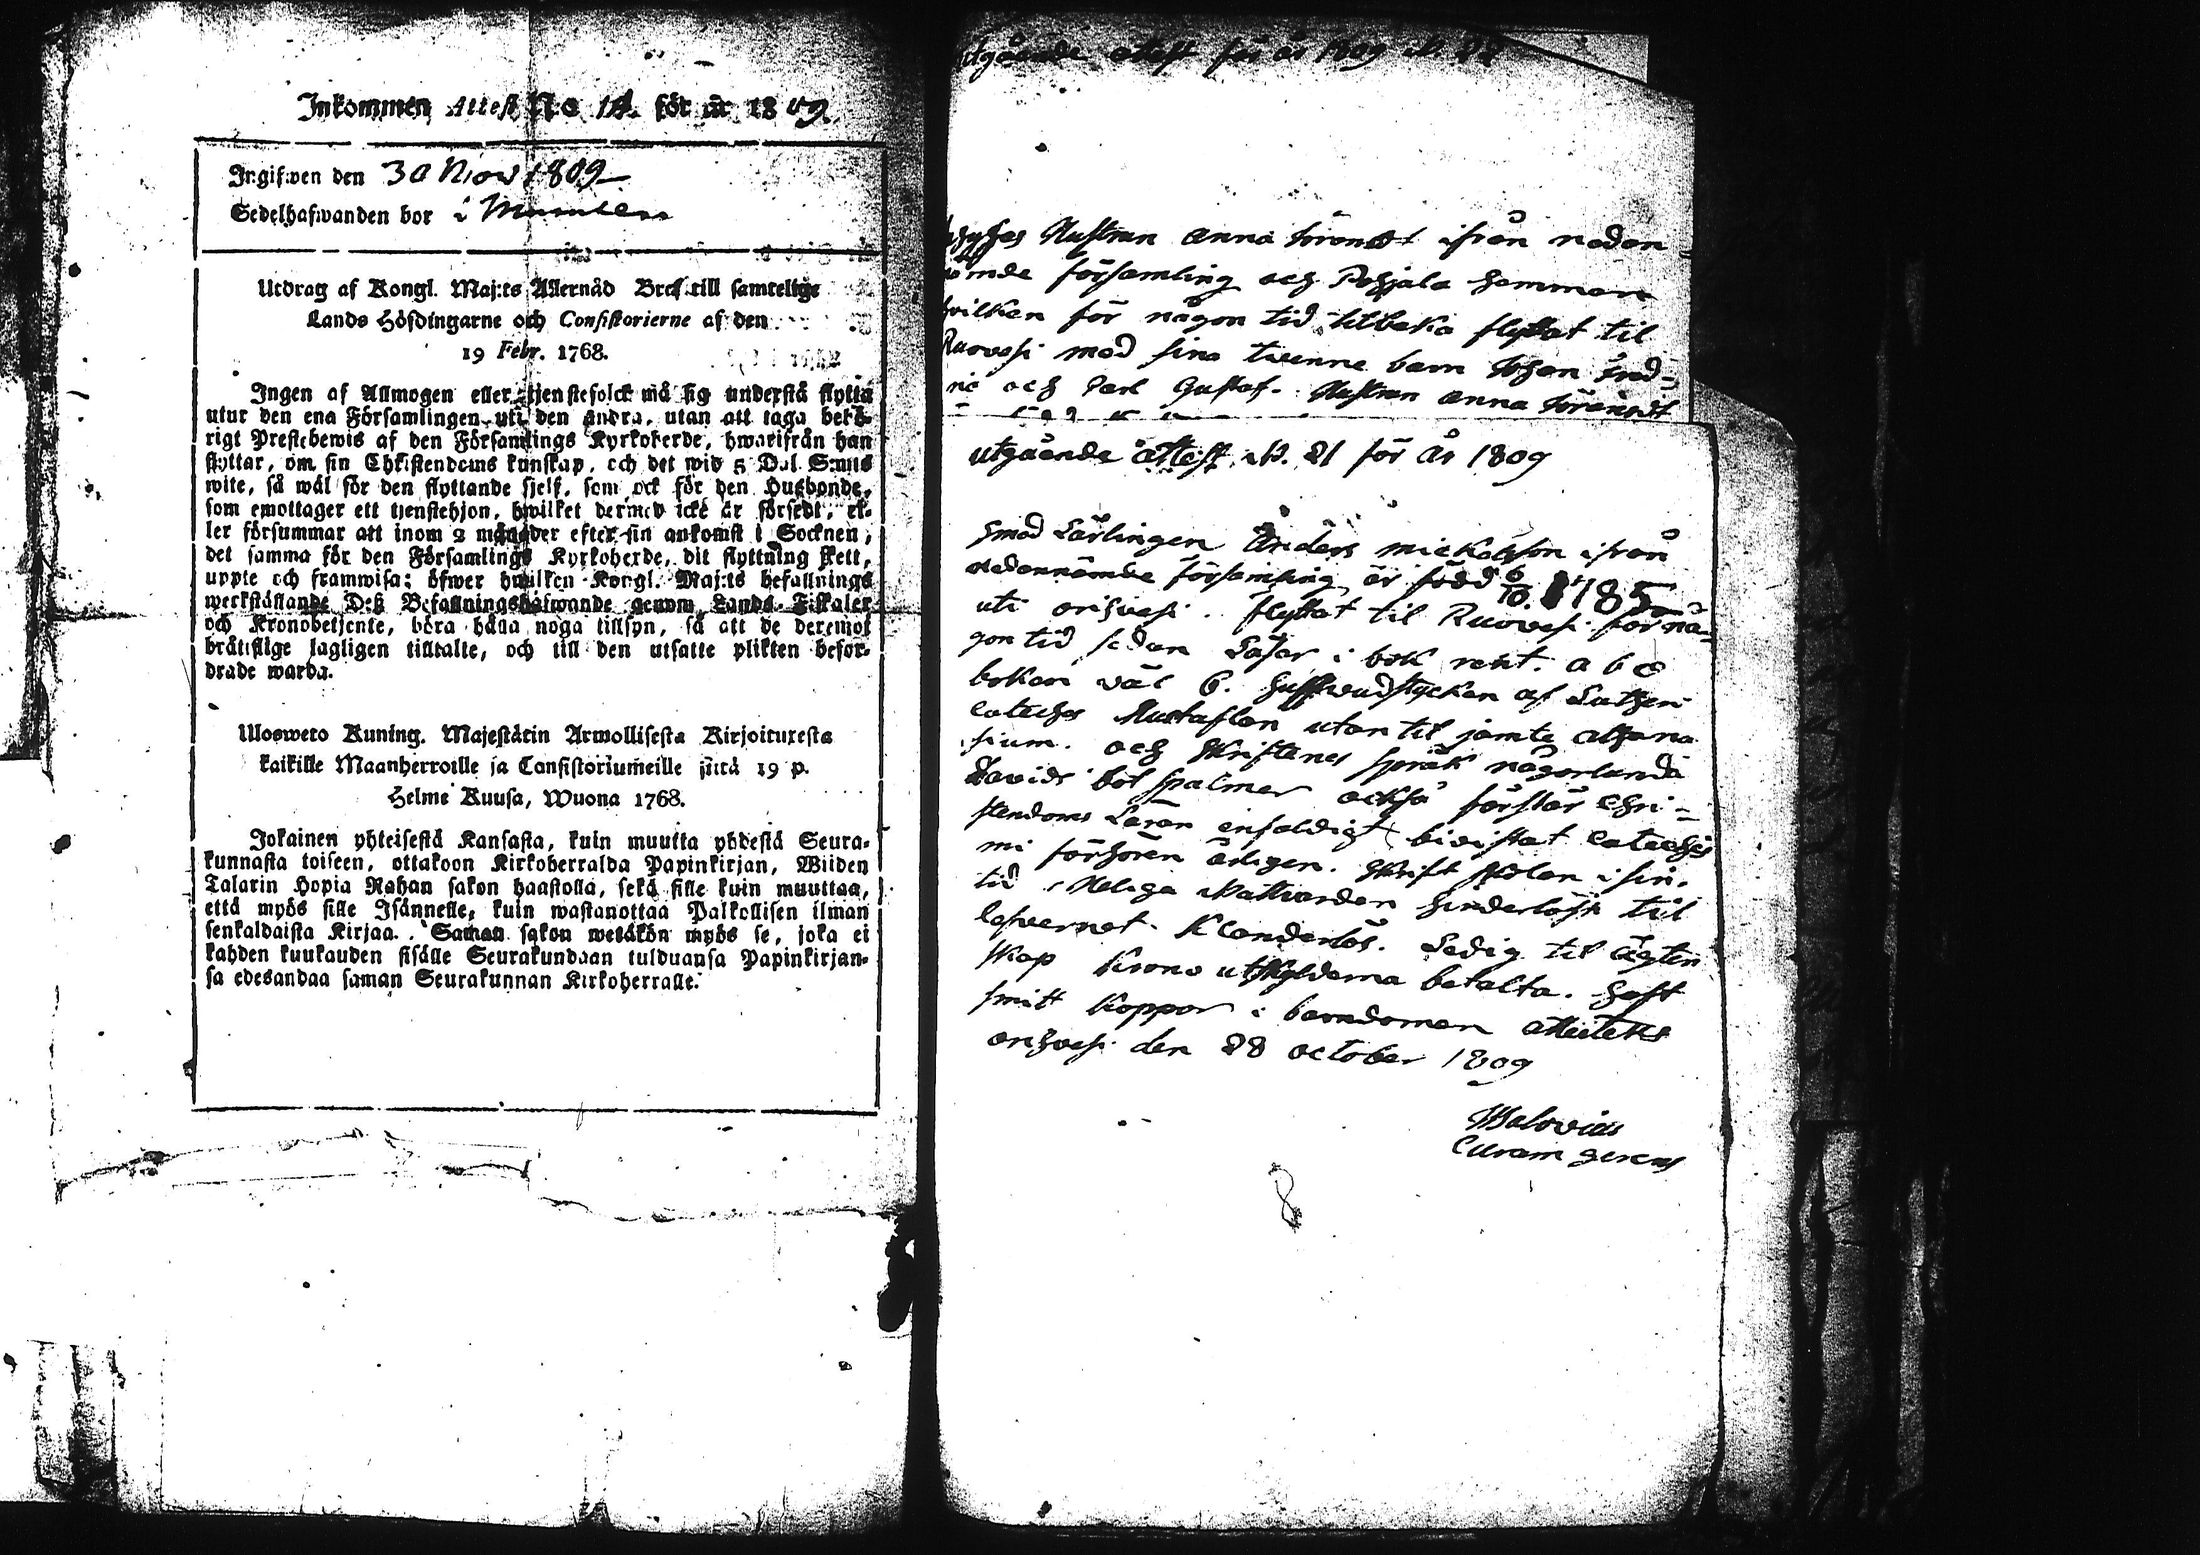 Inkommen Attest No 14. för år 1809.
Ingifwen den 30 Nov 1809
Sedelhafwanden bor i
Utdrag af Kongl. Maj:ts Allernåd Bref till samtelige
Lands Höfdingarne och Consistorierne af den
19 Febr. 1768.
Ingen af Allmogen eller tjenstefolck må sig understå flytta
utur den ena Församlingen uti den andra, utan att taga behö-
rigt Prestebewis af den Församlings Kyrkoherde, hwarifrån han
flyttar, om sin Christendoms kunskap, och det wid 5 Dal. S:mts
wite, så wäl för den flyttande sjelf, som ock för den Husbonde,
som emottager ett tjenstehjon, hwilket dermed icke är försedt, el-
ler försummar att inom 2 månader efter sin ankomst i Socknen,
det samma för den Församlings Kyrkoherde, dit flyttning skett,
uppte och framwisa; öfwer hwilken Kongl. Maj:ts befallnings
werkställande Deß Befallningshafwande genom Lands-Fiskaler
och Kronobetjente, böra hålla noga tillsyn, så att de deremot
bråttslige lagligen tilltalte, och till den utsatte plikten befor-
drade warda.
Ulosweto Kuning. Majestätin Armollisesta Kirjoituxesta
kaikille Maanherroille ja Consistoriumeille siitä 19 p.
Helme Kuusa, Wuona 1768.
Jokainen yhteisestä Kansasta, kuin muutta yhdestä Seura-
kunnasta toiseen, ottakoon Kirkoherralda Papinkirjan, Wiiden
Talarin Hopia Rahan sakon haastolla, sekä sille kuin muuttaa,
että myös sille Isännelle, kuin wastanottaa Palkollisen ilman
senkaldaista Kirjaa. Saman sakon wetäkön myös se, joka ei
kahden kuukauden sisälle Seurakundaan tulduansa Papinkirjan-
sa edesandaa saman Seurakunnan Kirkoherralle.
utgående attest för år 1809 N. 22
Hustrun Anna ifrån nedan
nämde församling och Pohjala hemman
hvilken för någon tid tilbaka flyttat til
Ruovesi med sina tvenne barn Johan Fred-
ric och Carl Gustaf. Hustrun Anna
utgående attest N. 21 för år 1809
Smed Lärlingen Anders Mickelsson ifrån
nedannämde församling är född 6/10. 1785
uti Orihvesi. flyttat til Ruovesi för nå-
gon tid sedan Läser i bok rent. a b c
boken väl 6. Hufvudstycken af Lutheri
Cateches Hustaflan utan til jämte Athana
sium. och Skriftenes språk någorlunda
Davids bot psalmer också förstår Chri-
stendoms Läran enfaldigt bivistat Cateches
mi förhören årligen. Skrift skolan i sin
tid. Heliga Nattvarden hinderlöst til
lefvernet Klanderlös. Ledig til ägten
skap Krono utskylderna betalta. Haft
smitt koppor i barndomen attesteras
Orihvesi den 28 October 1809
Curam gerens